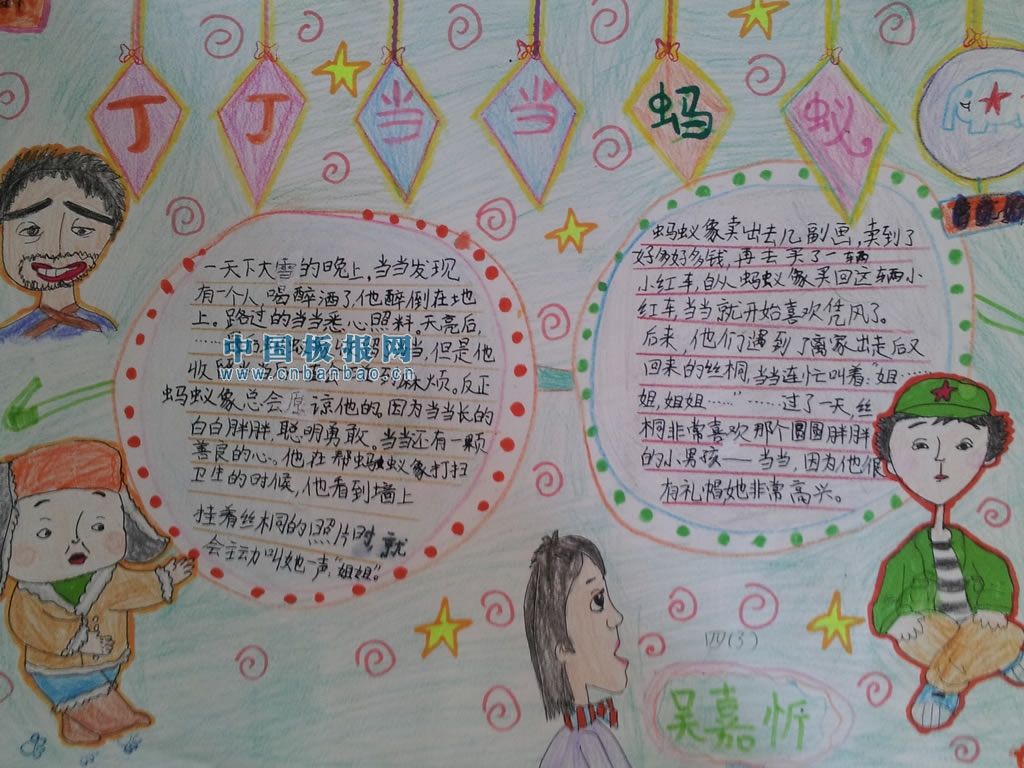 丁丁当当 蚂蚁
一天下大雪的晚上，当当发现
有一个人喝醉酒了，他醉倒在地
上。路过的当当悉心照料。天亮后，
当，但是他
收
麻烦。反正
中国板报网
www.cnbanbao.cn
蚂蚁象总会原谅他的，因为当当长的
白白胖胖，聪明勇敢。当当还有一颗
善良的心。他在帮蚂蚁象打扫
卫生的时候，他看到墙上
挂着丝桐的照片时就
会主动叫她一声“姐姐”。
蚂蚁象卖出去几副画，卖到了
好多好多钱，再去买了一辆
小红车，自从蚂蚁象买回这辆小
红车，当当就开始喜欢凭风了。
后来，他们遇到了离家出走后又
回来的丝桐，当当连忙叫着：“姐……
姐，姐姐……”……过了一天，丝
桐非常喜欢那个圆圆胖胖
的小男孩——当当，因为他很
有礼帽她非常高兴。
四(3)
吴嘉忻